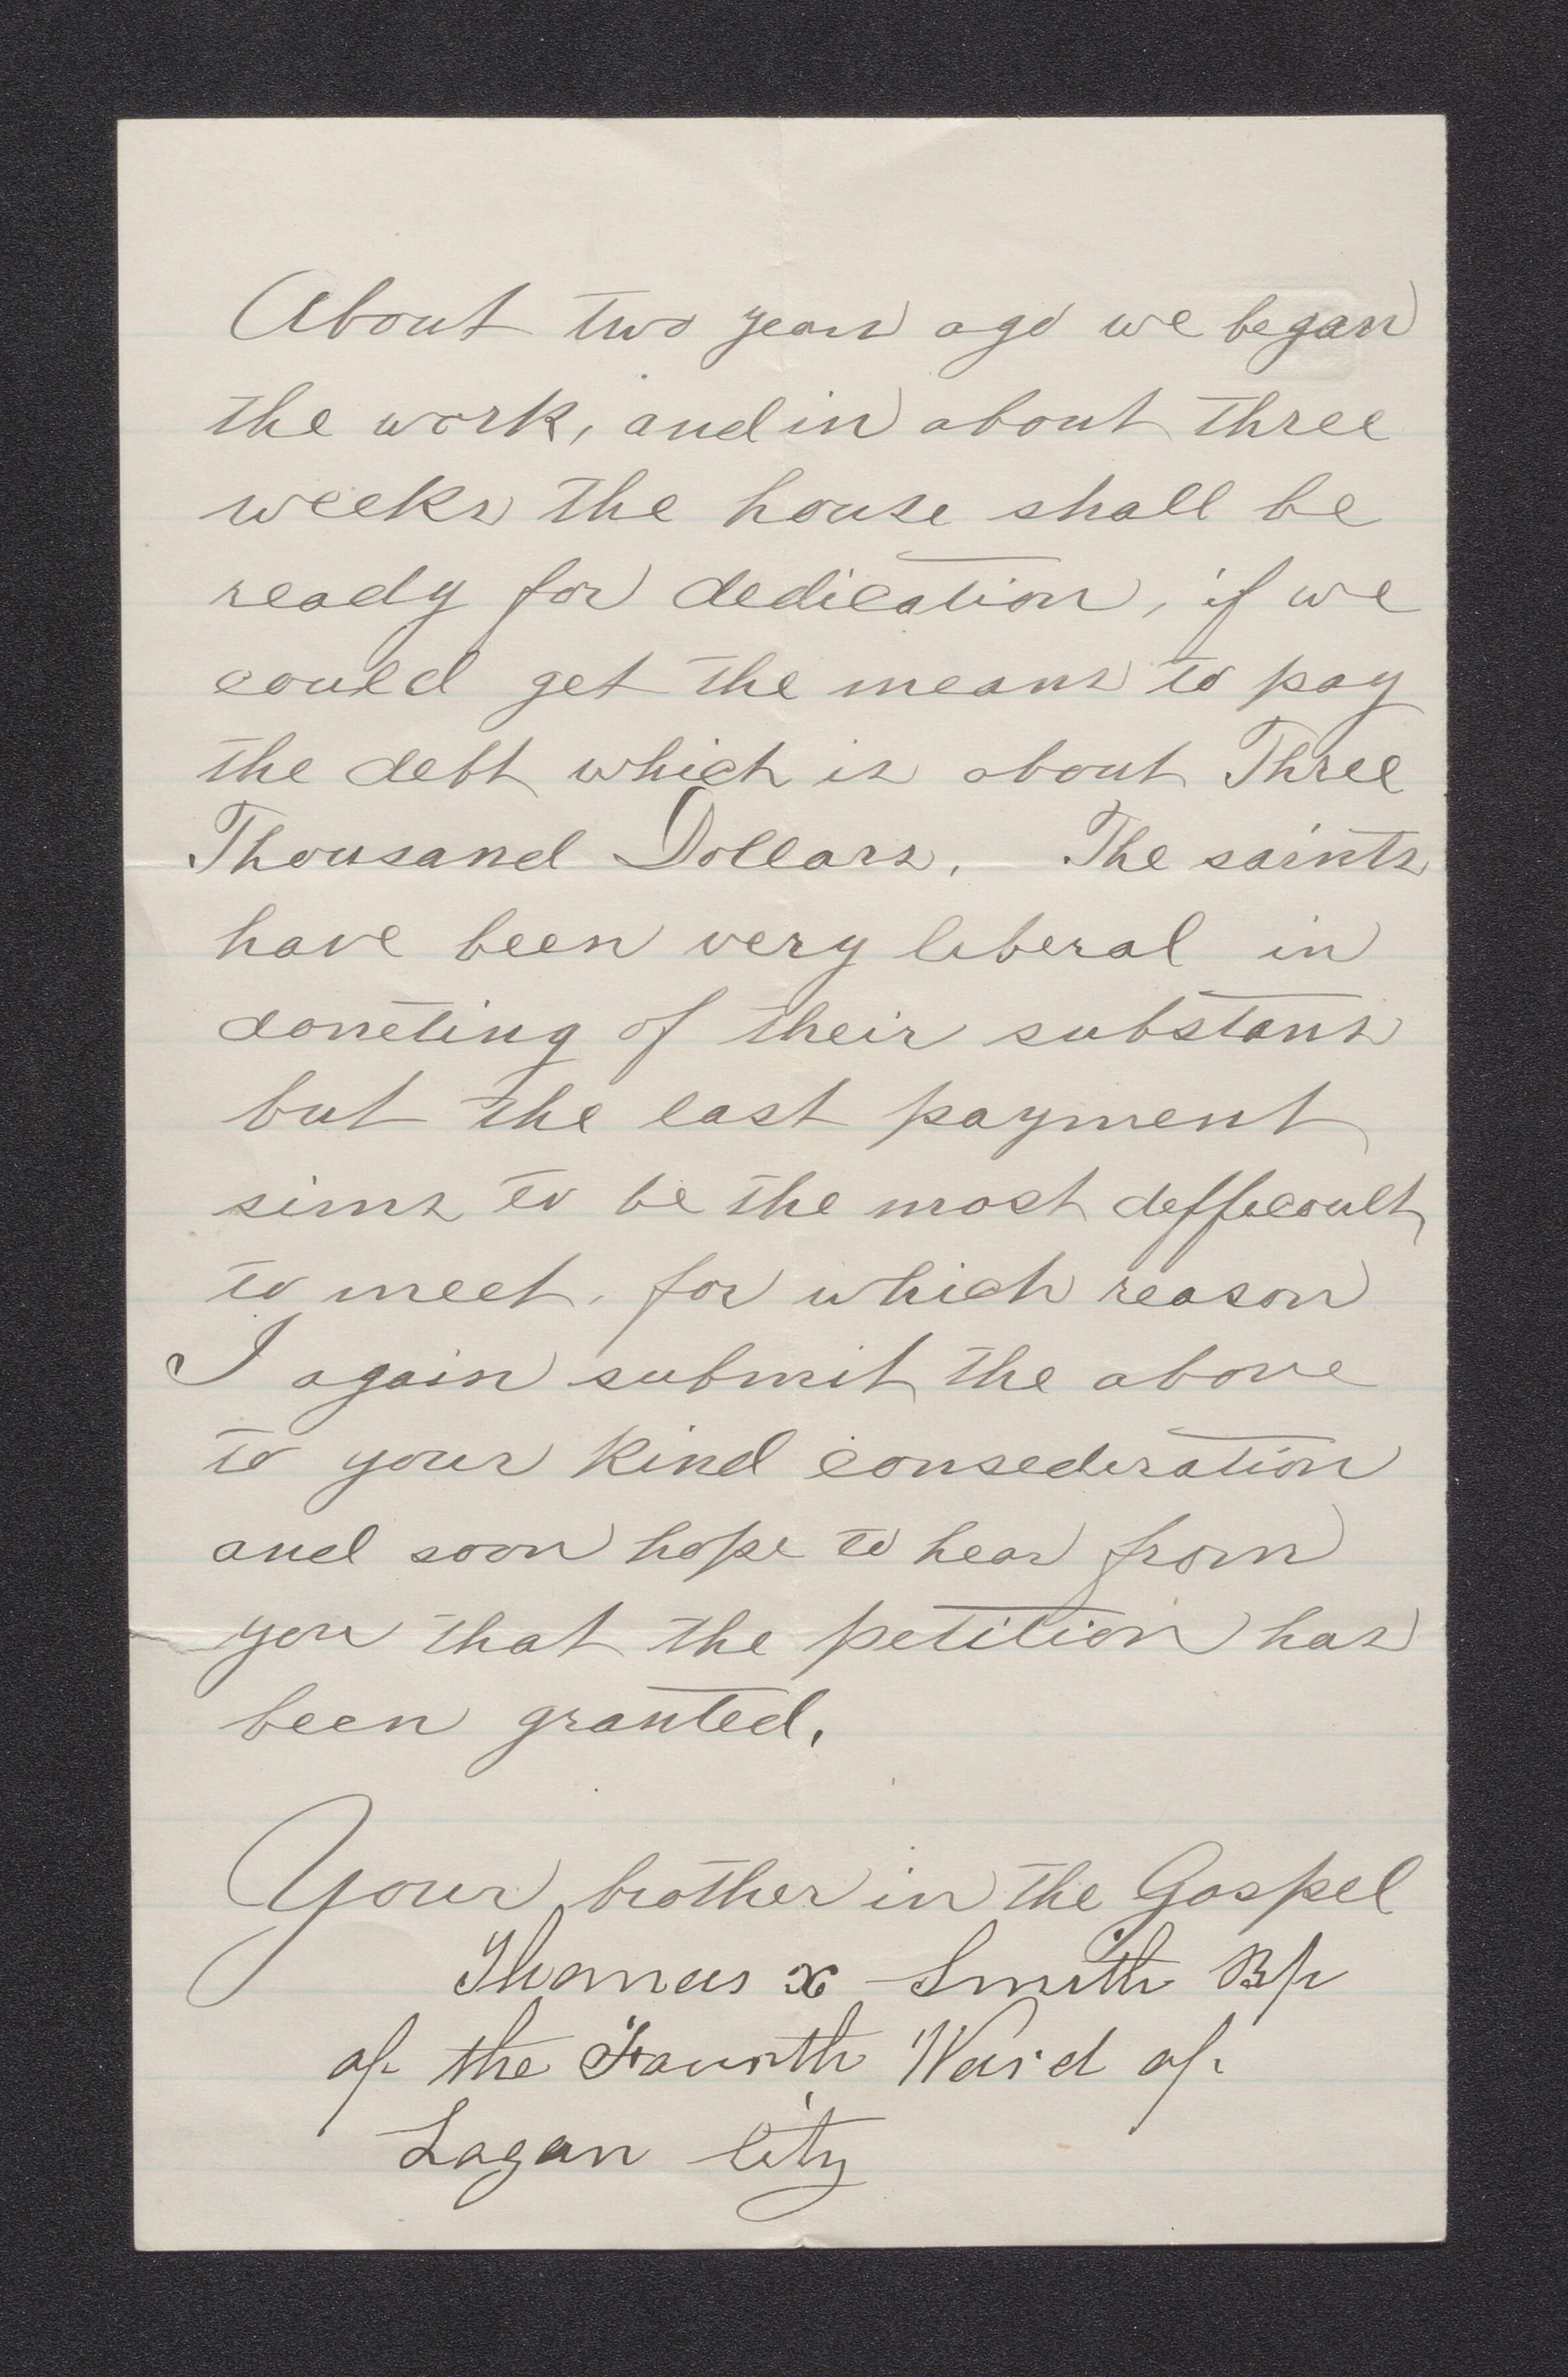 About two years ago we began
the work, and in about three
weeks the house shall be
ready for dedication, if we
could get the means to pay
the debt which is about Three
Thousand Dollars. The saints
have been very liberal in
doneting of their substans
but the last payment
sims to be the most deffecoult
to meet. for which reason
I again submit the above
to your kind consederation
and soon hope to hear from
you that the petition has
been granted.
Your brother in the Gospel
Thomas x Smith Bp
of the Fourth Ward of
Logan City